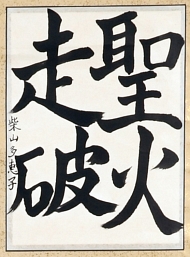 聖火
走破
柴山多恵子